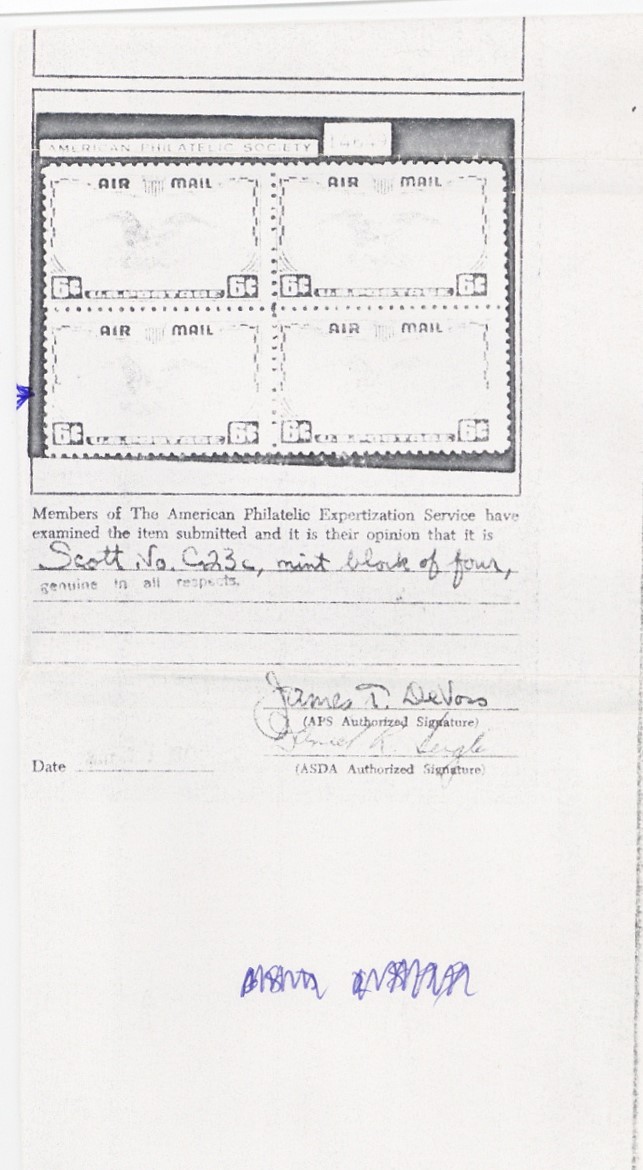 AMERICAN PHILATELIC SOCIETY
AIR MAIL AIR MAIL
6¢ U.S. POSTAGE 6¢ 6¢ U.S. POSTAGE 6¢
AIR MAIL AIR MAIL
6¢ U.S. POSTAGE 6¢ 6¢ U.S. POSTAGE 6¢
Members of The American Philatelic Expertization Service have
examined the item submitted and it is their opinion that it is
Scott No. C23c, mint block of four,
genuine in all respects.
James T. DeVoss
(APS Authorized Signature)
Date
(ASDA Authorized Signature)